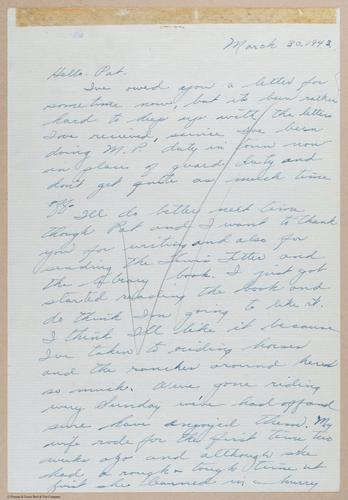 March 30, 1943
Hello Pat.
I've owed you a letter for
sometime now, but its been rather
hard to keep up with the letters
I've recieved, since I've been
doing M.P. duty in town now
in place of guard duty and
don't get quite as much time
off.
I'll do better next time
though Pat and I want to thank
you for writing and also for
sending the News Letter and
the library book. I just got
started reading the book and
do think I'm going to like it.
I think I'll like it because
I've taken to riding horses
and the ranches around here
so much. We've gone riding
every Sunday we've had off and
sure have enjoyed them. My
wife rode for the first time two
weeks ago and although she
had a rough & tough time at
first she learned in a hurry